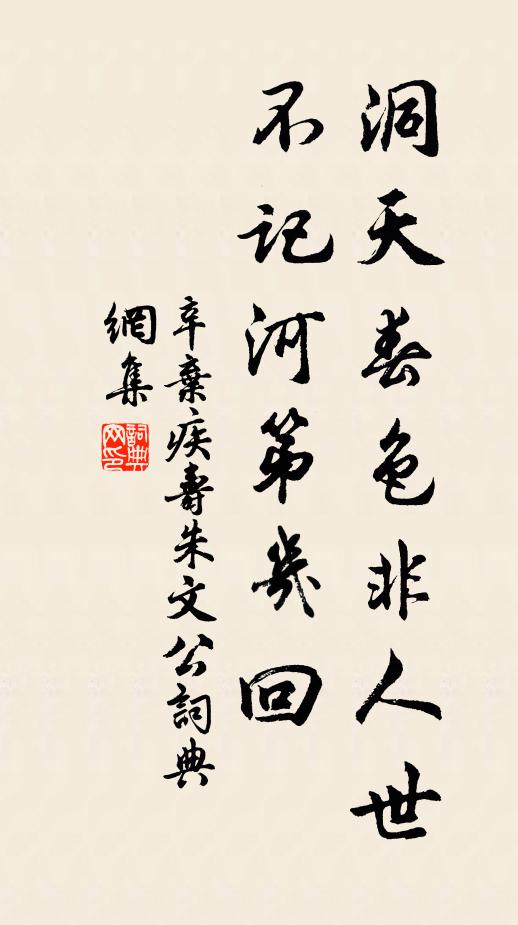 洞天春色非人世
不记河第幾回
辛棄疾壽朱文公詞典
網集
詞典
网印